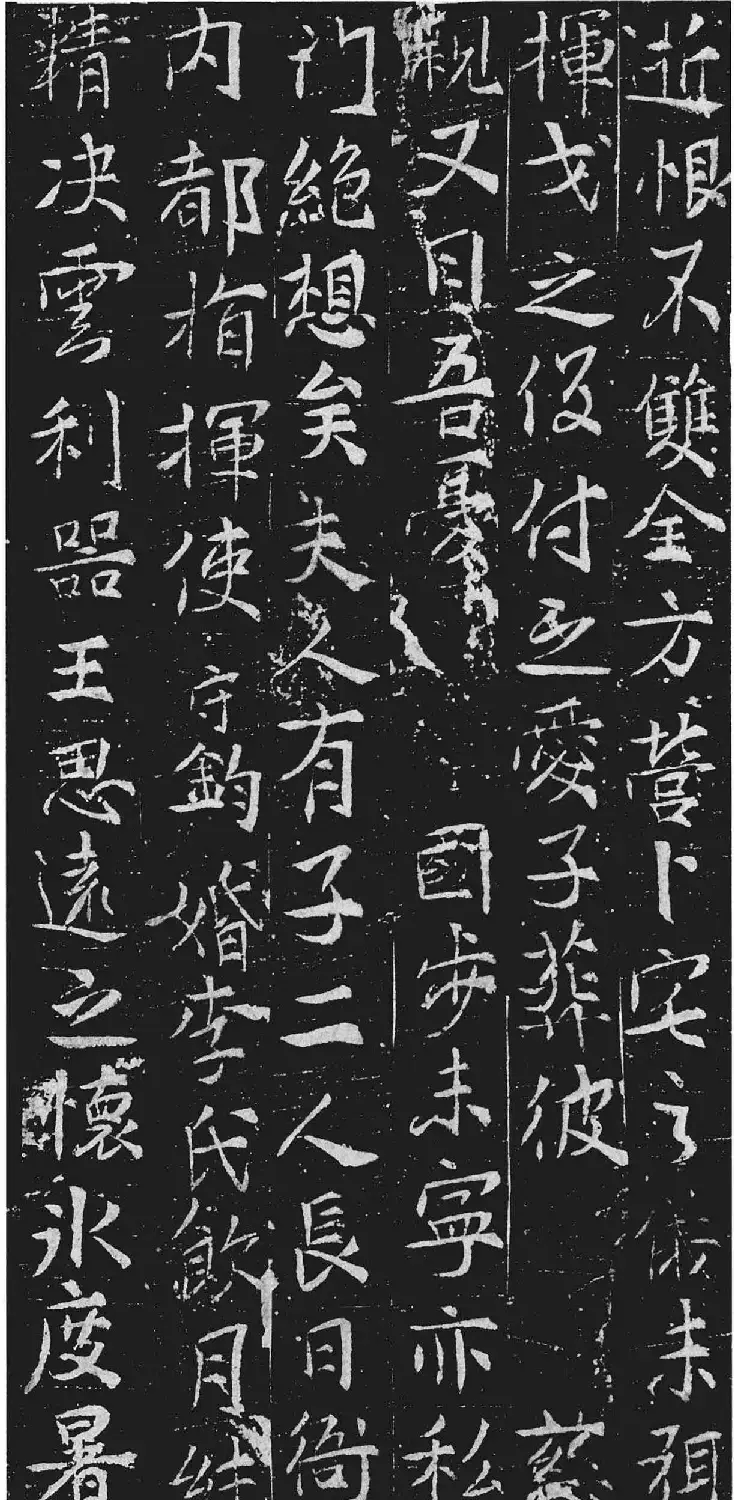 逝恨不雙全方營卜宅之儀未
揮戈之役付之愛子葬彼慈
親又目吾國步未寧亦私
門絶想矣夫人有子二人長曰衙
内都指揮使守鈞婚李氏飲月結
精决雲利器王思遠之懷氷度暑